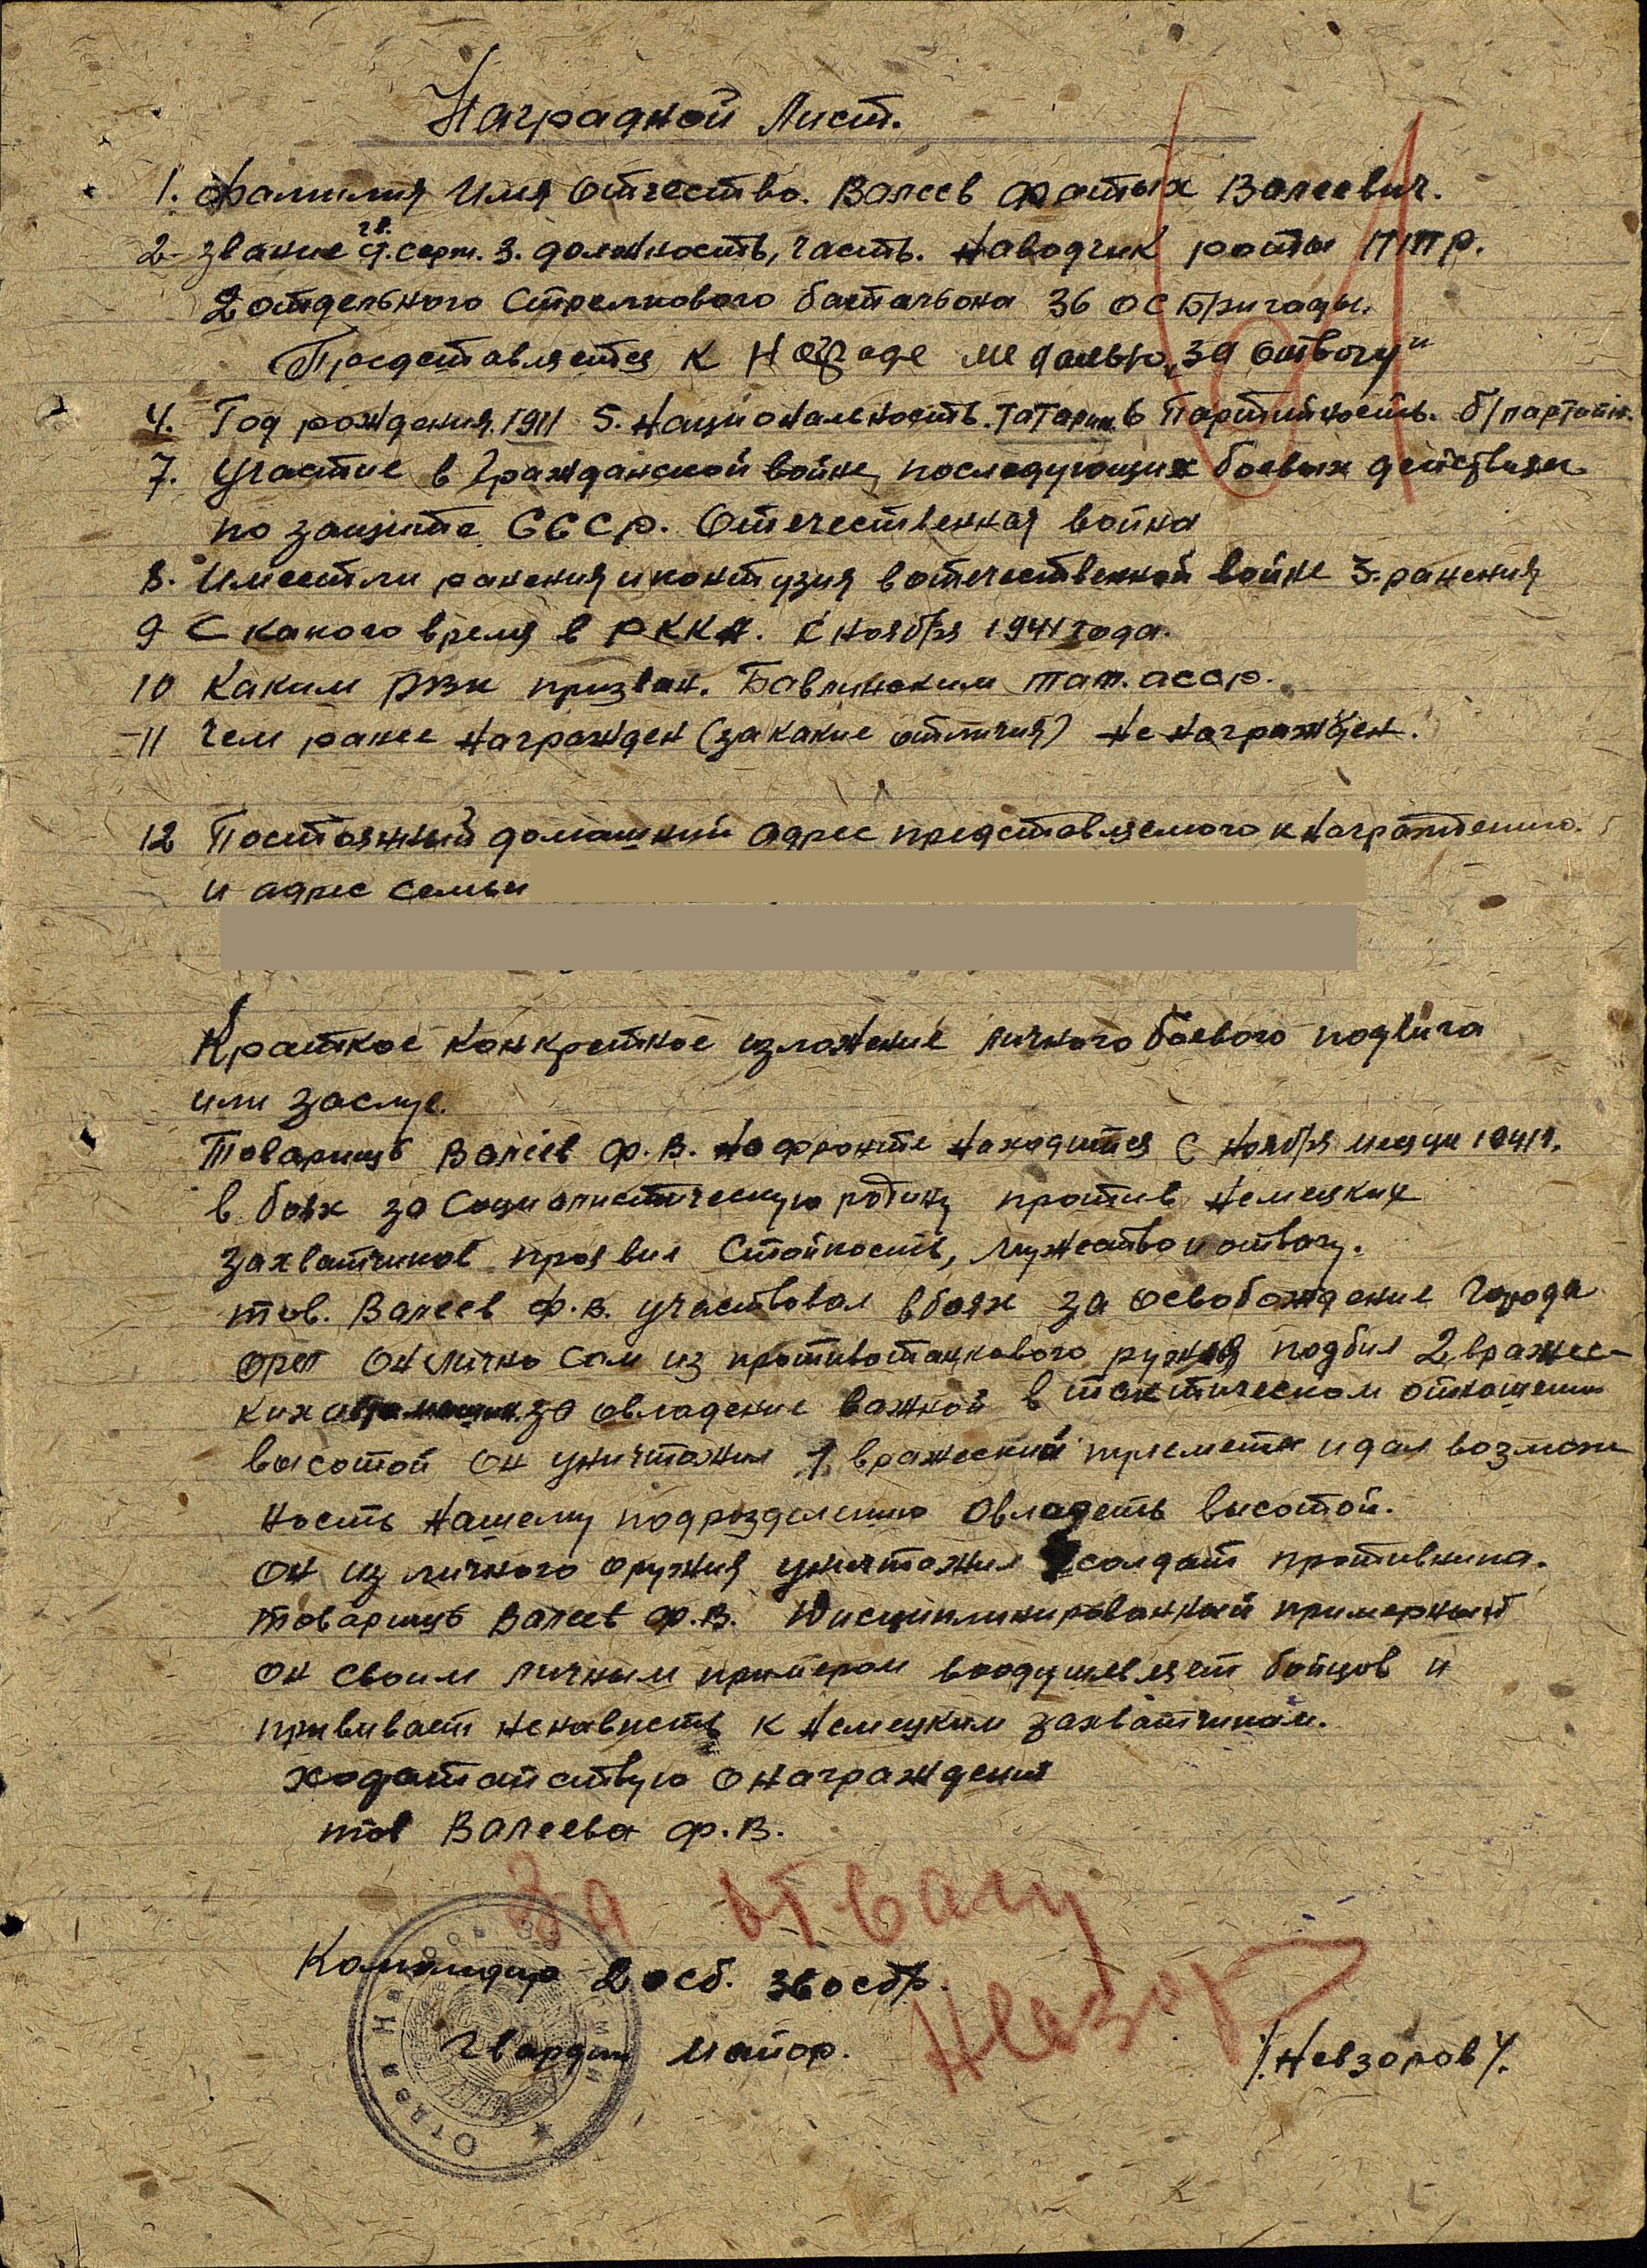 Наградной Лист.
1. Фамилия Имя Отчество. Валеев Фатых Валеевич.
2- звание гв. с. серж. 3. должность, часть. Наводчик роты ПТР.
2 отдельного Стрелкового батальона 36 ОС Бригады.
Представляется к Награде медалью „За отвагу"
4. Год рождения. 1911 5. Национальность. Татарин 6 Партийность. б/партийн.
7. Участие в Гражданской войне, последующих боевых действиях
по защите СССР. Отечественная война
8. Имеет ли ранения и контузия в отечественной войне 3. ранения
9 С какого время в РККА. С ноября 1941 года.
10 Каким РВК призван. Бавлинским тат. асср.
11 Чем ранее награжден (за какие отличия) Не награжден.
12 Постоянный домашний адрес представляемого к награждению.
и адрес семьи
Краткое конкретное изложение личного боевого подвига
или заслуг.
Товарищь Валеев Ф.В. На фронте находится с Ноября месяца 1941г.
в боях за Социалистическую родину против Немецких
захватчиков проявил Стойкость, мужество и отвагу.
тов. Валеев Ф.В. участвовал в боях за освобождение города
орел он лично сам из противотанкового ружья подбил 2 вражес-
ких за овладение важной в тактическом отношении
высотой он уничтожил 1 вражеский пулемета и дал возмож
ность нашему подразделению овладеть высотой.
он из личного оружия уничтожил солдат противника.
товарищь Валеев Ф.В. Дисциплинированный примерный
он своим личным примером воодушевляет бойцов и
прививает ненависть к Немецким захватчикам.
ходатайствую о награждения
тов Валеева Ф.В.
За отвагу
Командир 2 осб. 36 осбр.
Гвардии майор. /Невзоров/.